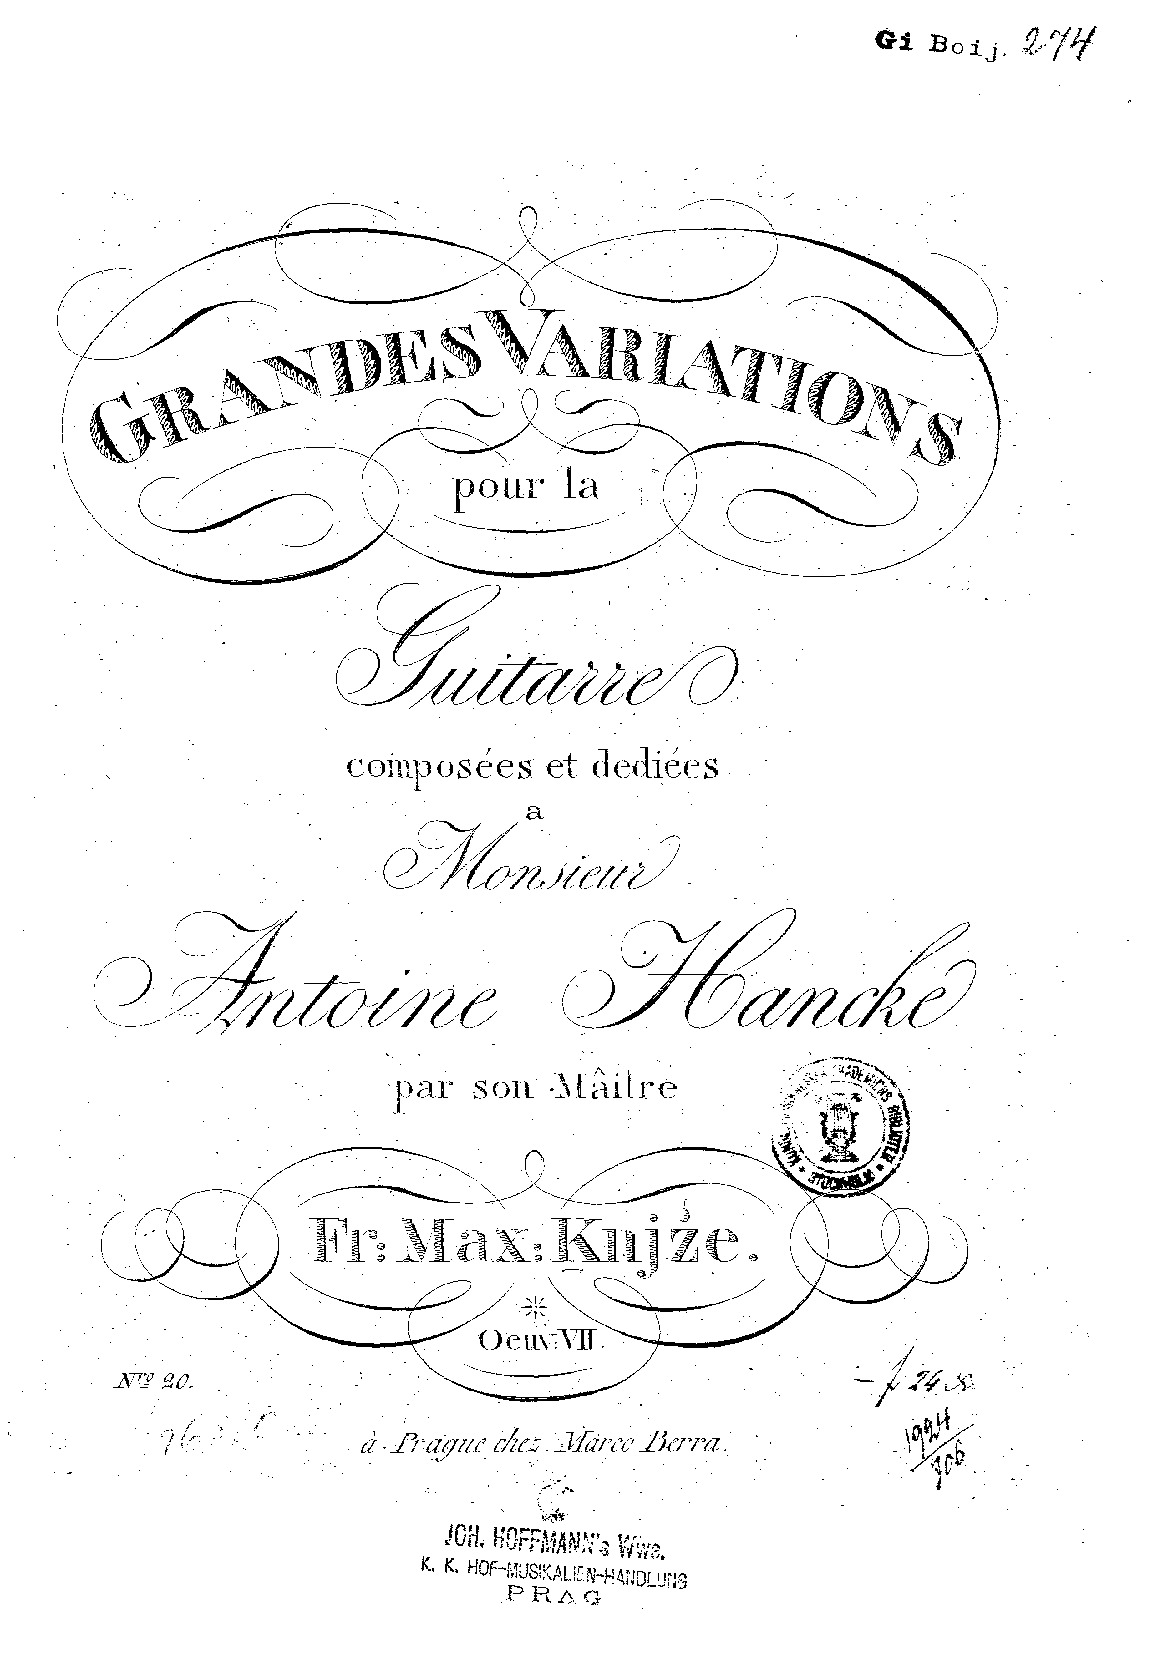 Gi Boij. 274
GRANDES VARIATIONS
pour la
Guitarre
composées et dediées
a
Monsieur
Antoine Hancke
par son Mâitre
Fr: Max: Knjże.
Oeuv: VII.
Nro 20.
f 24
1924
306
à Prague chez Marco Berra.
JOH. HOFFMANN's Wwe.
K. K. HOF-MUSIKALIEN-HANDLUNG
PRAG